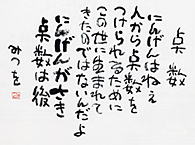 点数
にんげんはねえ
人から点数を
つけられるために
この世に生まれて
きたのではないんだよ
にんげんがさき
点数は後
みつを